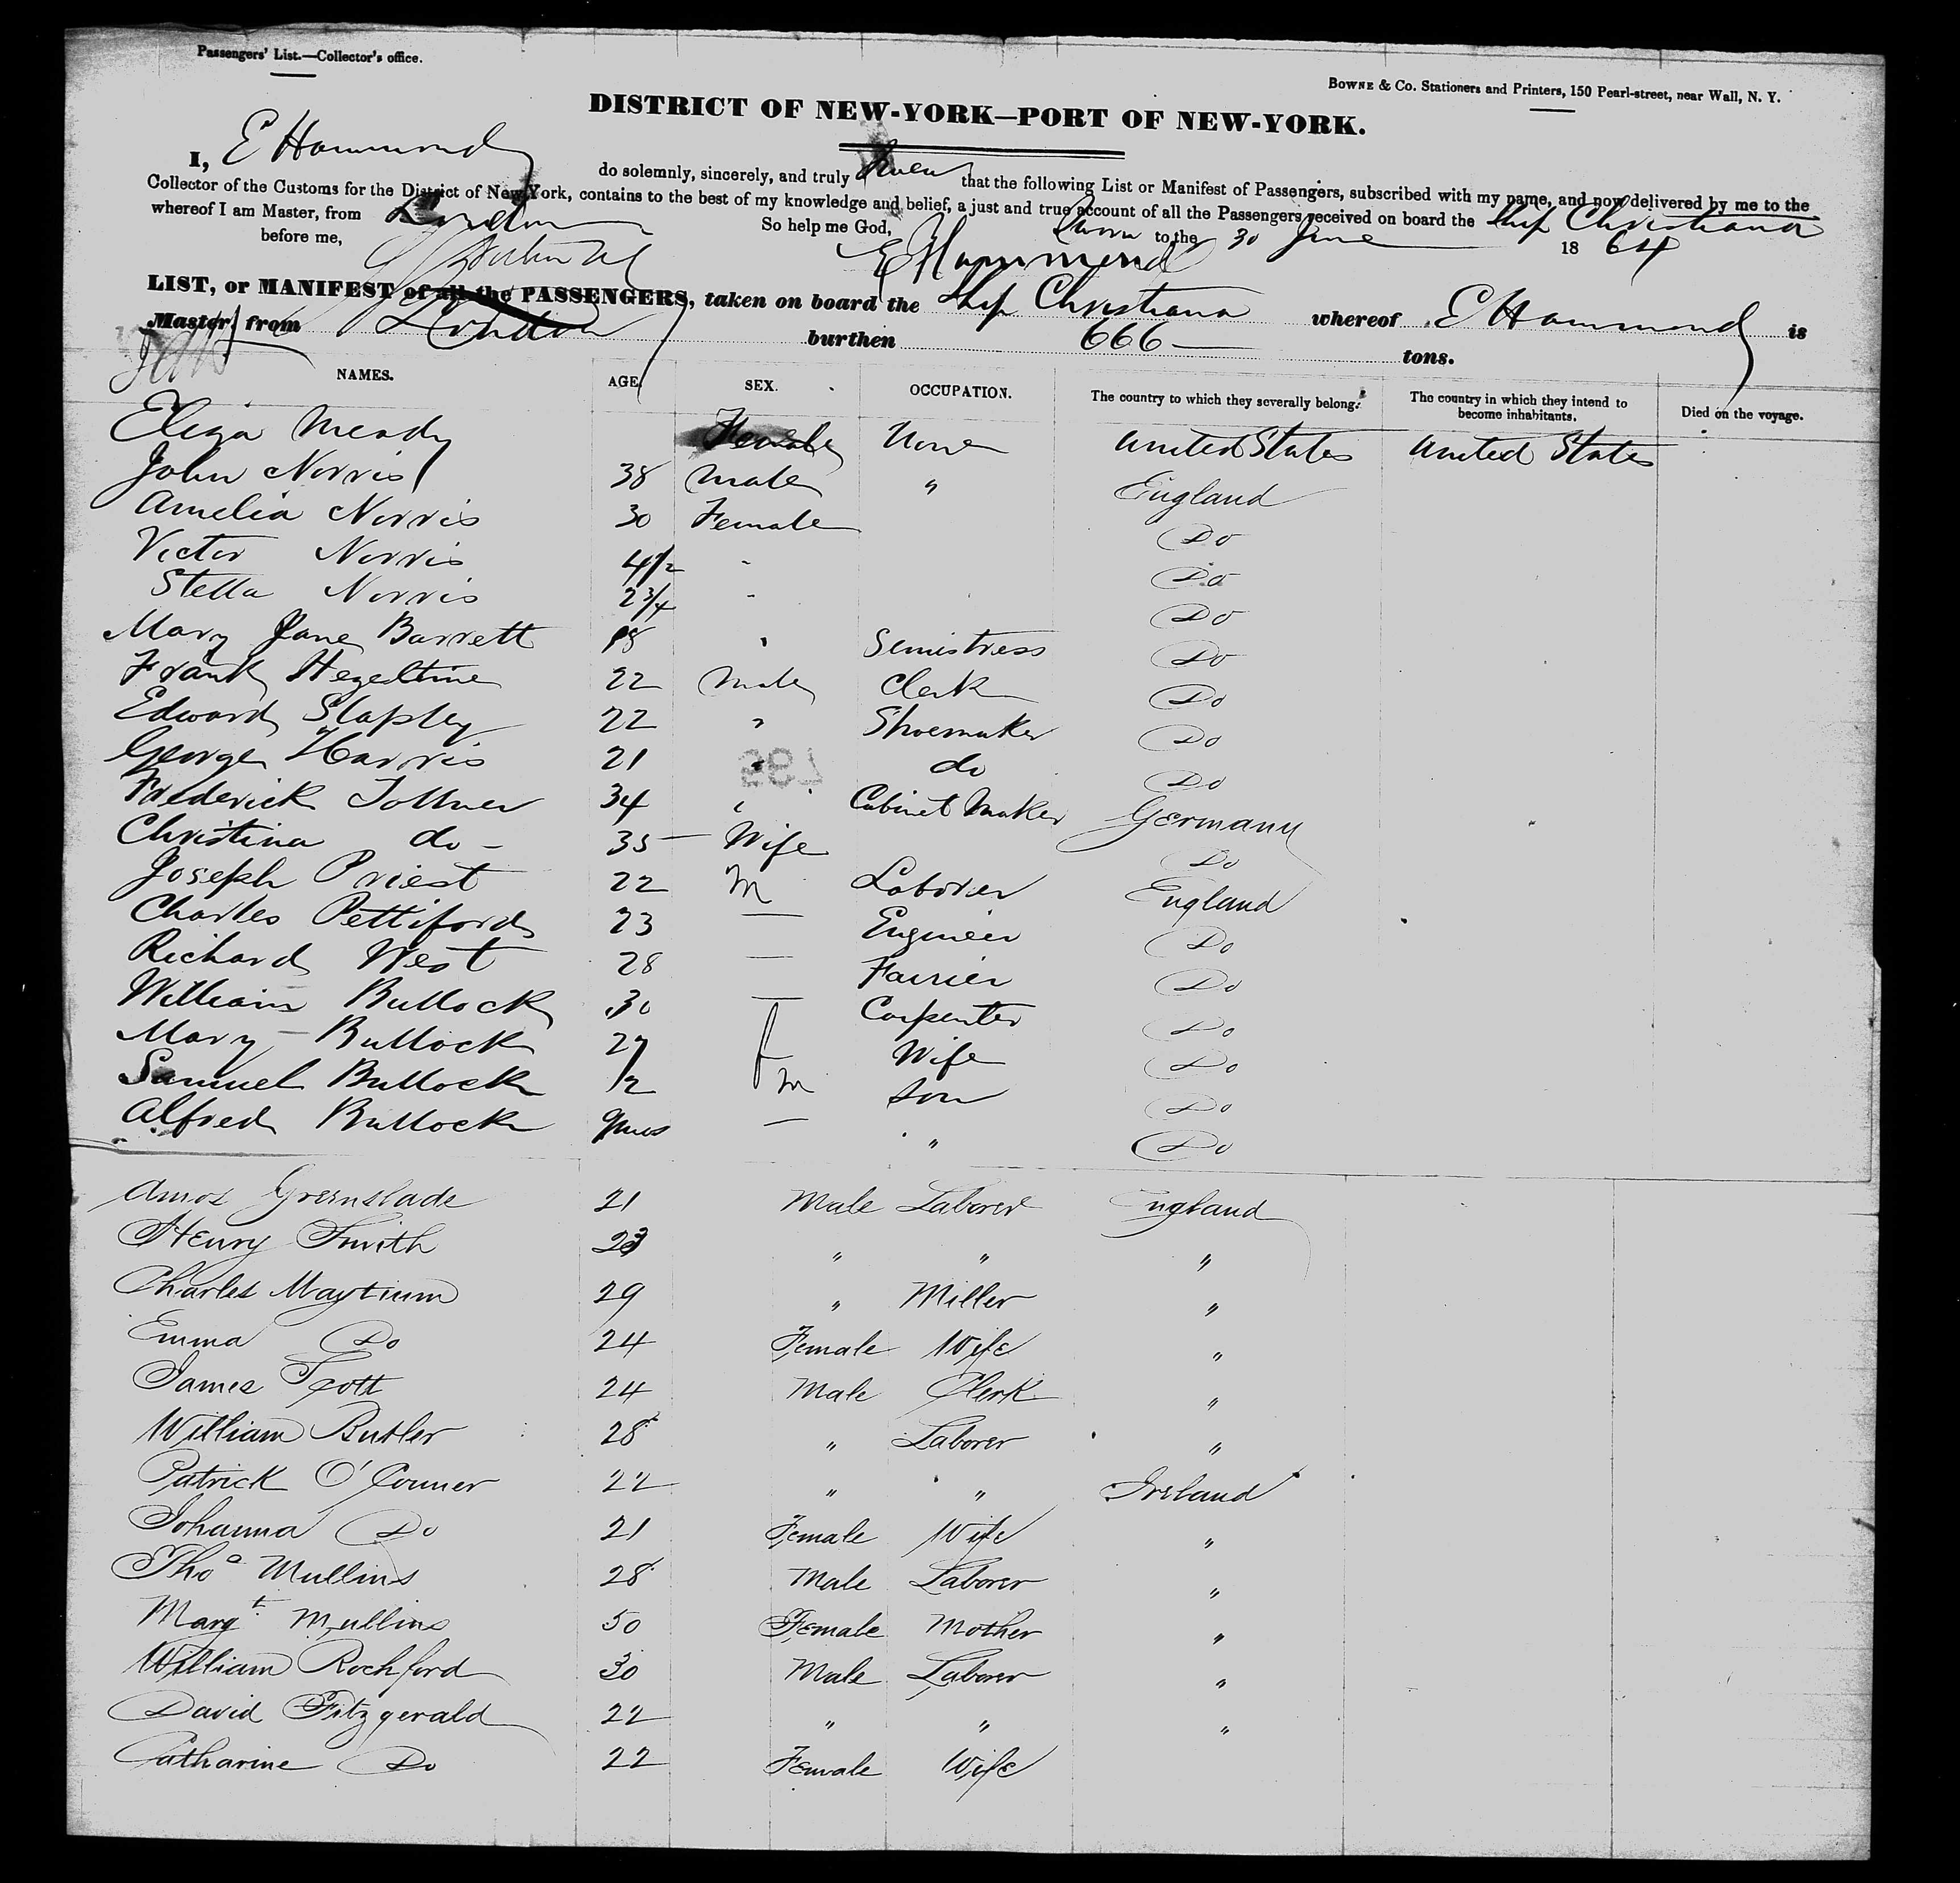 Passengers' List.—Collector's office.
BOWNE & Co. Stationers and Printers, 150 Pearl-street, near Wall, N. Y.
DISTRICT OF NEW-YORK—PORT OF NEW-YORK.
I, E Hammond do solemnly, sincerely, and truly swear that the following List or Manifest of Passengers, subscribed with my name, and now delivered by me to the
Collector of the Customs for the District of New York, contains to the best of my knowledge and belief, a just and true account of all the Passengers received on board the Ship Christiana
whereof I am Master, from London So help me God, Sworn to the 30 June 1864
before me, E Hammond
LIST, or MANIFEST of all the PASSENGERS, taken on board the Ship Christiana whereof E Hammond is
Master, from London burthen 666 — tons.
NAMES. AGE. SEX. OCCUPATION. The country to which they severally belong. The country in which they intend to become inhabitants. Died on the voyage.
Eliza Mendy Female None United States United States
John Norris 38 Male " England
Amelia Norris 30 Female Do
Victor Norris 4 1/2 - Do
Stella Norris 2 3/4 - Do
Mary Jane Barrett 18 " Semistress Do
Frank Hezeltine 22 Male Clerk Do
Edward Slapley 22 " Shoemaker Do
George Harris 21 " do Do
Frederick Tollner 34 " Cabinet Maker Germany
Christina do - 35 — Wife Do
Joseph Priest 22 M Laborer England
Charles Pettiford 23 — Engineer Do
Richard West 28 — Farrier Do
William Bullock 30 — Carpenter Do
Mary Bullock 27 f Wife Do
Samuel Bullock 1/2 M Son Do
Alfred Bullock 9mos — " Do
Amos Greenslade 21 Male Laborer England
Henry Smith 23 " " "
Charles Maytium 29 " Miller "
Emma Do 24 Female Wife "
James Scott 24 Male Clerk "
William Butler 28 " Laborer "
Patrick O'Conner 22 " " Ireland
Johanna Do 21 Female Wife "
Thos Mullins 28 Male Laborer "
Margt Mullins 50 Female Mother "
William Rochford 30 Male Laborer "
David Fitzgerald 22 " " "
Catharine Do 22 Female Wife